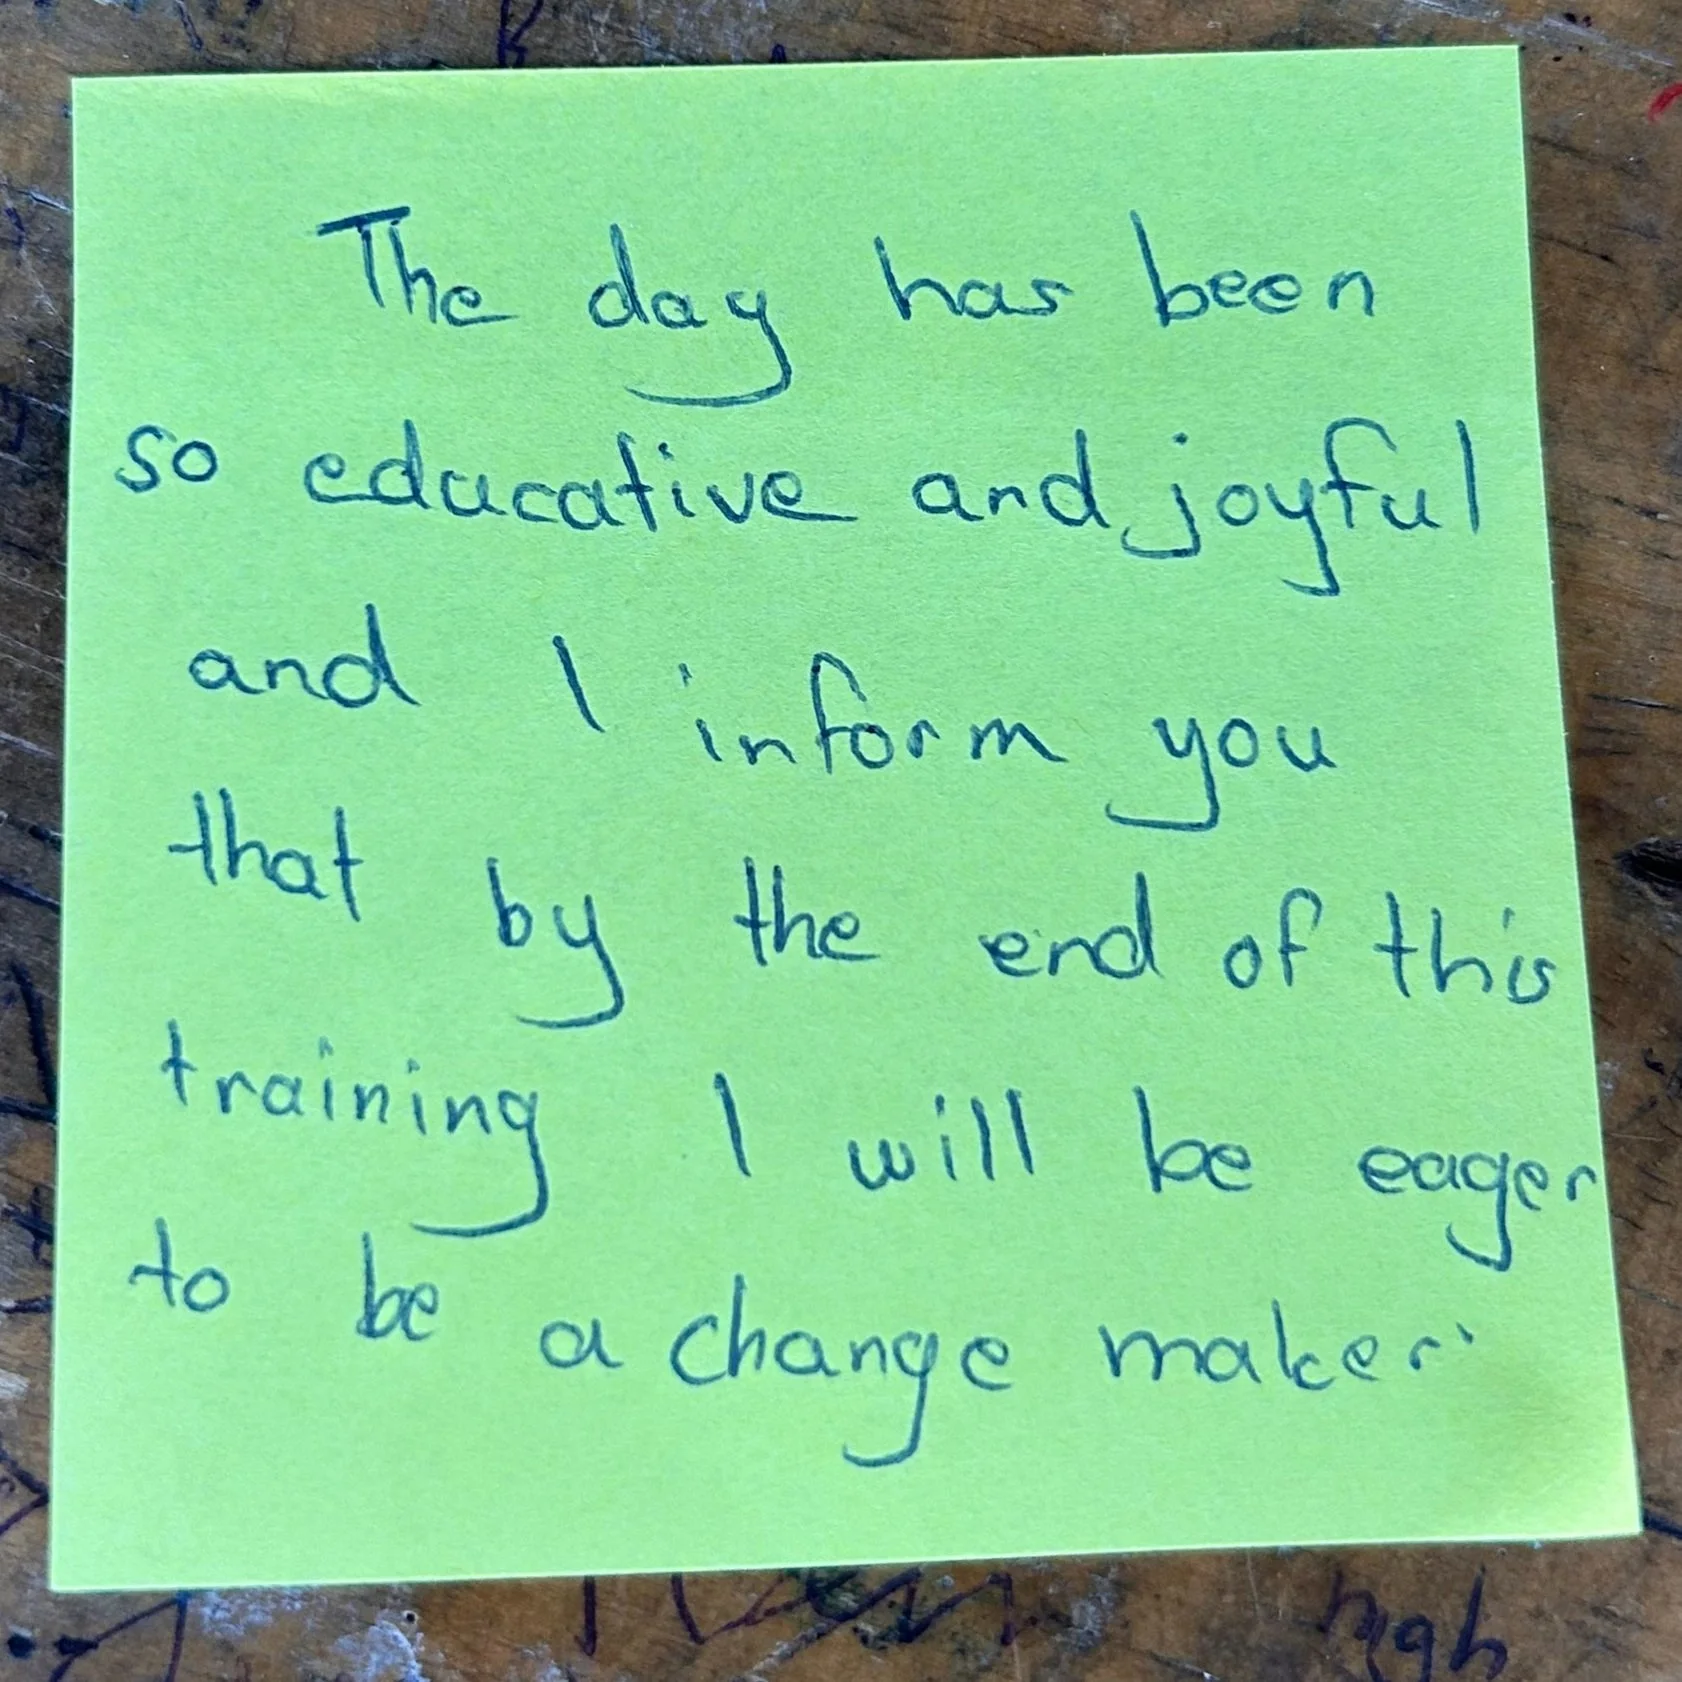 The day has been
so educative and joyful
and I inform you
that by the end of this
training I will be eager
to be a change maker.